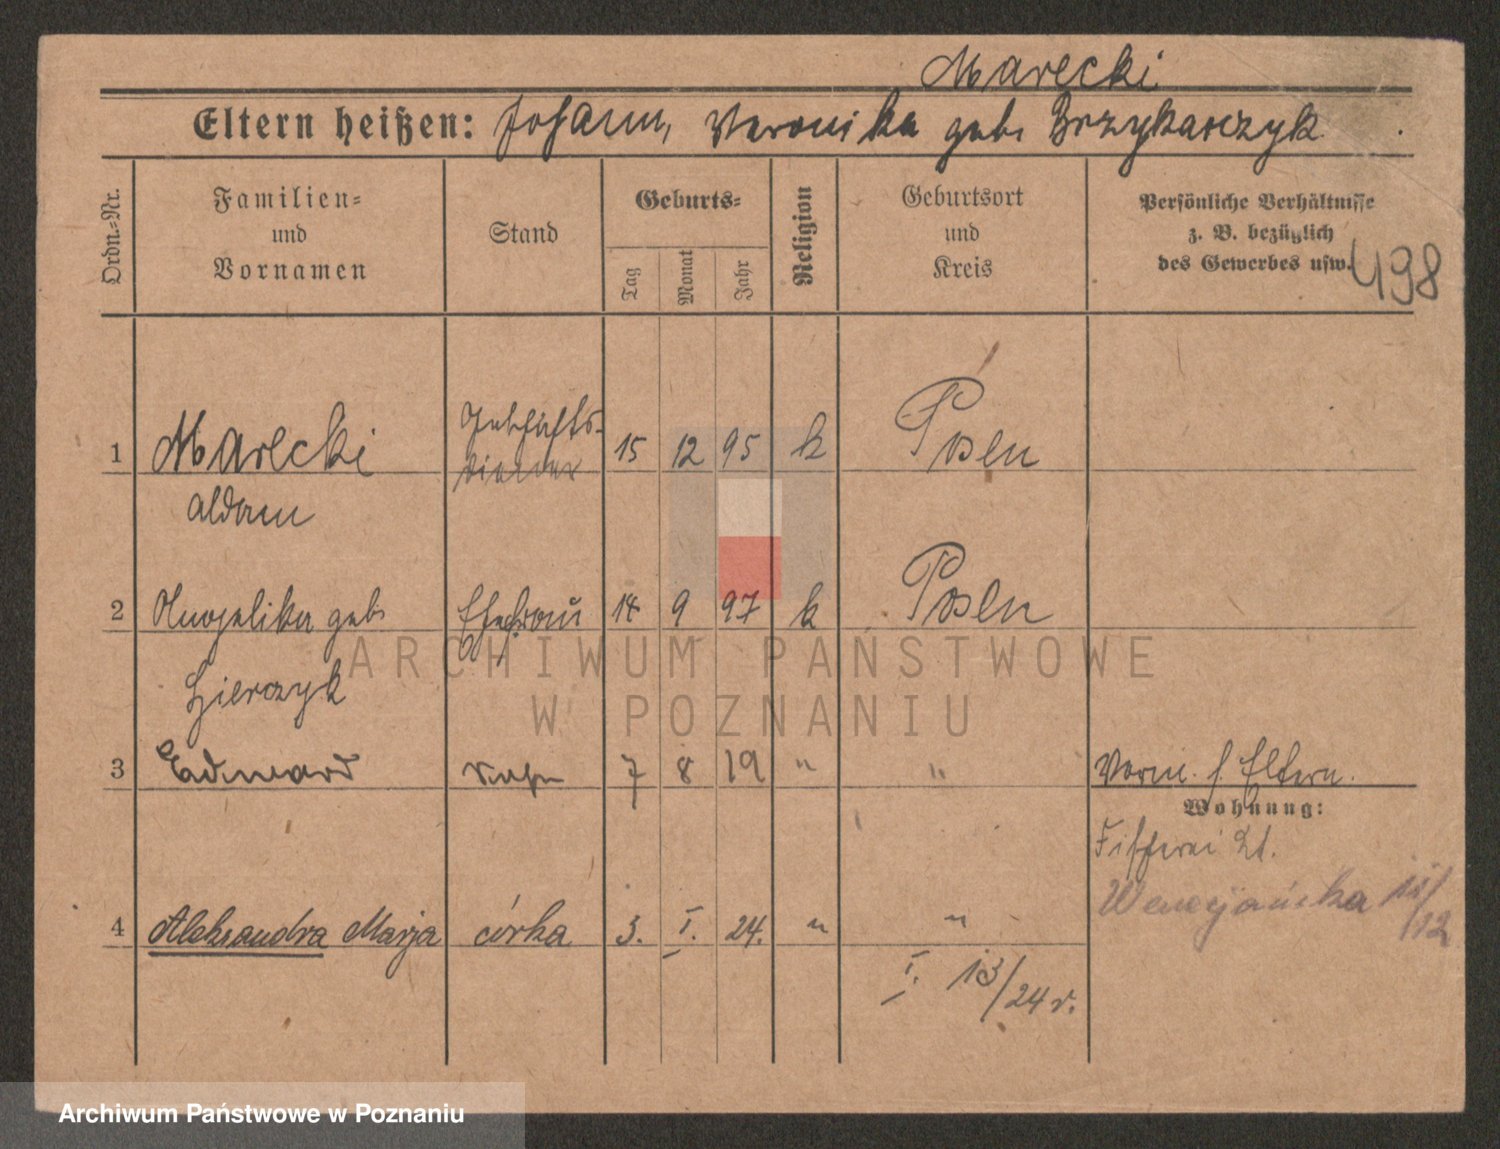 Marecki
Eltern heißen: Johann, Veronika geb. Brzykarczyk
Ordn.-Nr.
Familien-
und
Vornamen
Stand
Geburts-
Tag
Monat
Jahr
Religion
Geburtsort
und
Kreis
Persönliche Verhältnisse
z. B. bezüglich
des Gewerbes usw.
498
1 Marecki Geschäfts- 15 12 95 k Posen
diener
Adam
2 Angelika geb. Ehefrau 14 9 97 k Posen
3 Edward Sohn 7 8 19 " " Vorm. s. Eltern.
Wohnung:
Fischerei 21.
Wenecjańska
4 Aleksandra Marja córka 3. I. 24. " "
I. 13/24 r.
ARCHIWUM PAŃSTWOWE
W POZNANIU
Archiwum Państwowe w Poznaniu